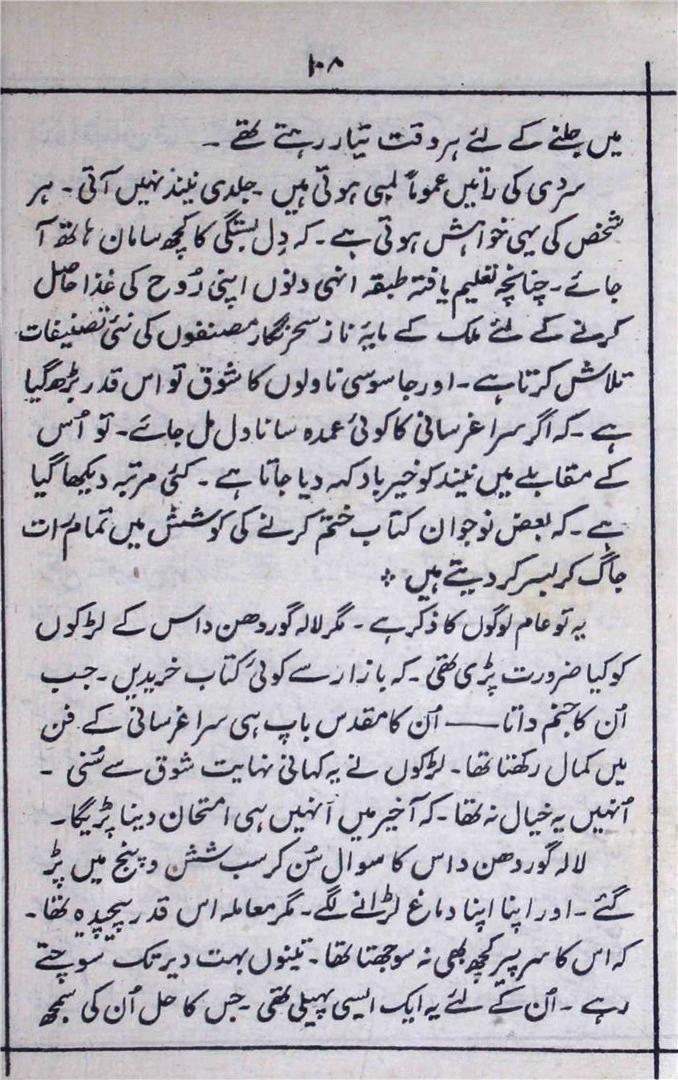 ۱۰۸
میں جلنے کے لئے ہر وقت تیار رہتے تھے ۔
سردی کی راتیں عموماً لمبی ہوتی ہیں ۔ جلدی نیند نہیں آتی ۔ ہر
شخص کی یہی خواہش ہوتی ہے ۔ کہ دِل بستگی کا کچھ سامان ہاتھ آ
جائے ۔ چنانچہ تعلیم یافتہ طبقہ انہی دنوں اپنی رُوح کی غذا حاصل
کرنے کے لئے ملک کے مایۂ ناز سحر نگار مصنفوں کی نئی تصنیفات
تلاش کرتا ہے ۔ اور جاسوسی ناولوں کا شوق تو اس قدر بڑھ گیا
ہے ۔ کہ اگر سراغرسانی کا کوئی عمدہ سا ناول مل جائے ۔ تو اُس
کے مقابلے میں نیند کو خیرباد کہہ دیا جاتا ہے ۔ کئی مرتبہ دیکھا گیا
ہے ۔ کہ بعض نوجوان کتاب ختم کرنے کی کوشش میں تمام رات
جاگ کر بسر کر دیتے ہیں ؞
یہ تو عام لوگوں کا ذکر ہے ۔ مگر لالہ گوردھن داس کے لڑکوں
کو کیا ضرورت پڑی تھی ۔ کہ بازار سے کوئی کتاب خریدیں ۔ جب
اُن کا جنم داتا —— اُن کا مقدس باپ ہی سراغرسانی کے فن
میں کمال رکھتا تھا ۔ لڑکوں نے یہ کہانی نہایت شوق سے سُنی ۔
اُنہیں یہ خیال نہ تھا ۔ کہ آخیر میں اُنہیں ہی امتحان دینا پڑیگا ۔
لالہ گوردھن داس کا سوال سُن کر سب شش و پنج میں پڑ
گئے ۔ اور اپنا اپنا دماغ لڑانے لگے ۔ مگر معاملہ اس قدر پیچیدہ تھا ۔
کہ اس کا سر پیر کچھ بھی نہ سوجھتا تھا ۔ تینوں بہت دیر تک سوچتے
رہے ۔ اُن کے لئے یہ ایک ایسی پہیلی تھی ۔ جس کا حل اُن کی سمجھ